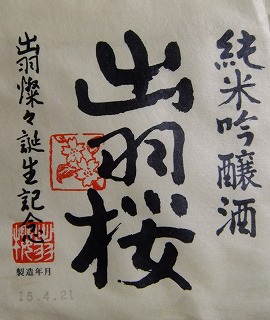 純米吟醸酒
出羽桜
出羽燦々誕生記念
製造年月
15.4.21